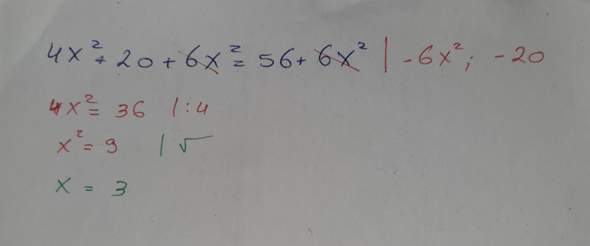 4x² + 20 + 6x² = 56 + 6x² | -6x²; -20
4x² = 36 | :4
x² = 9 | √
x = 3